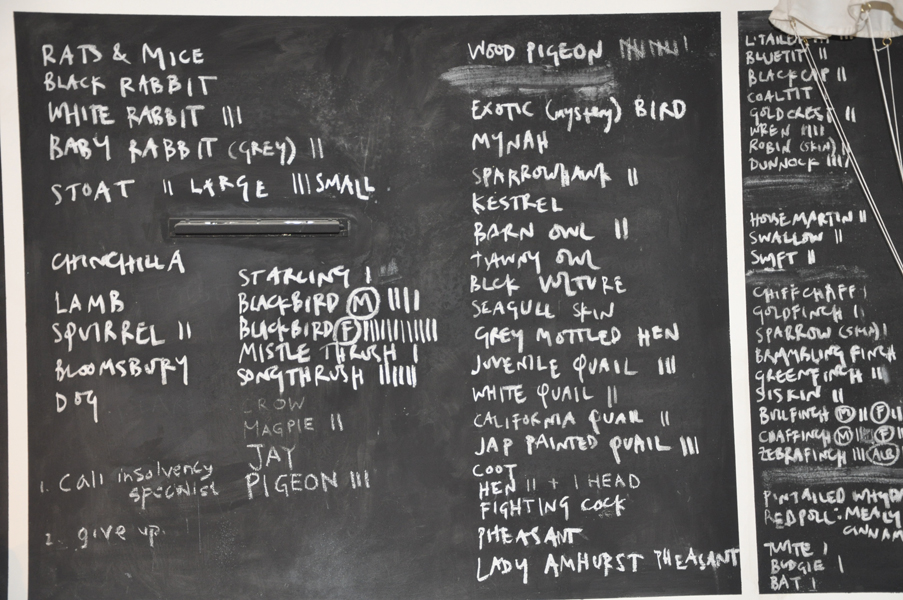 RATS & MICE
BLACK RABBIT
WHITE RABBIT III
BABY RABBIT (GREY) II
STOAT II LARGE III SMALL
CHINCHILLA
LAMB
SQUIRREL II
BLOOMSBURY
DOG
1. Call insolvency
specialist
2. give up.
STARLING I
BLACKBIRD M IIII
BLACKBIRD F IIIIIIIIIII
MISTLE THRUSH I
SONGTHRUSH IIIIII
CROW
MAGPIE II
JAY
PIGEON III
WOOD PIGEON
EXOTIC (mystery) BIRD
MYNAH
SPARROWHAWK II
KESTREL
BARN OWL II
TAWNY OWL
BLCK VULTURE
SEAGULL SKIN
GREY MOTTLED HEN
JUVENILE QUAIL III
WHITE QUAIL II
CALIFORNIA QUAIL II
JAP PAINTED QUAIL III
COOT
HEN II + I HEAD
FIGHTING COCK
PHEASANT
LADY AMHURST PHEASANT
BLUETIT II
BLACKCAP II
COALTIT
GOLDCREST II
WREN IIII
ROBIN (SKIN)
DUNNOCK IIII
HOUSE MARTIN II
SWALLOW II
SWIFT II
CHIFFCHAFF I
GOLDFINCH I
SPARROW (SKIN) I
BRAMBLING FINCH
GREENFINCH II
SISKIN II
BULFINCH M II F II
CHAFFINCH M F
ZEBRAFINCH III ALB
PINTAILED
REDPOLL: MEALY
CINNAM
TWITE I
BUDGIE I
BAT I